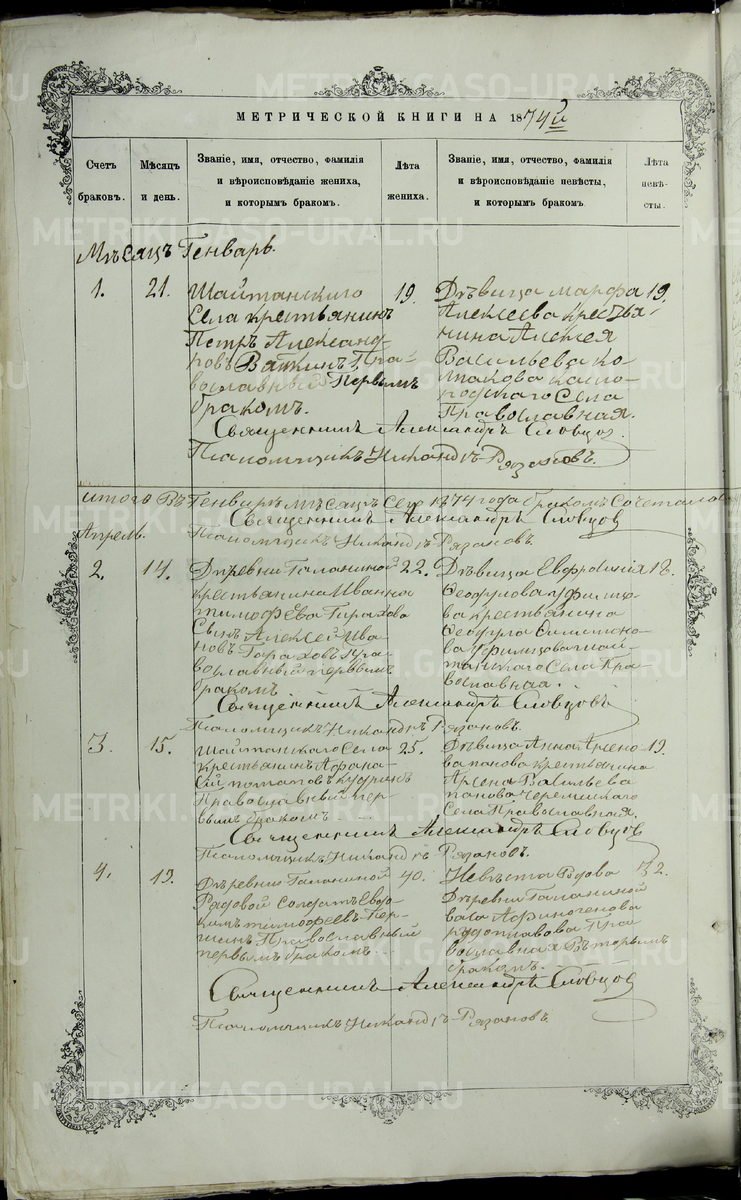 МЕТРИЧЕСКОЙ КНИГИ НА 1874й
Счетъ браковъ.
Мѣсяцъ и день.
Званіе, имя, отчество, фамилія и вѣроисповѣданіе жениха, и которымъ бракомъ.
Лѣта жениха.
Званіе, имя, отчество, фамилія и вѣроисповѣданіе невѣсты, и которымъ бракомъ.
Лѣта невѣсты.
Мѣсяцъ Генварь.
1. 21.
Шайтанскаго
Села крестьянинъ
Петръ Александ-
ровъ Вяткинъ, Пра-
вославный Первымъ
бракомъ.
19.
Дѣвица Марфа
Алексеева крестья-
нина Алексея
Васильева
Села
Православная.
19.
Священникъ Александръ Словцовъ.
Псаломщикъ Никандръ Рязановъ.
Итого Въ Генварѣ мѣсяцѣ сего 1874 года бракомъ Сочеталось
Священникъ Александръ Словцов
Апрель.
Псаломщикъ Никандръ Рязановъ.
2. 14.
Деревни Галаниной
крестьянина Ивана
Тимофеева
Сынъ Алексей Ива-
новъ Пра-
вославный первымъ
бракомъ
22.
Дѣвица Евфросинія
ва крестьянина
Села Пра-
вославная.
18.
Священникъ Александръ Словцовъ
Псаломщикъ Никандръ Рязановъ.
3. 15.
Шайтанскаго Села
крестьянинъ Афана-
сій Потаповъ Кудринъ
Православный пер-
вымъ бракомъ
25.
Дѣвица Анна Арсено-
ва Панова крестьянина
Арсена Васильева
Панова Черемисскаго
Села Православная.
19.
Священникъ Александръ Словцов
Псаломщикъ Никандръ Рязановъ.
4. 19.
Деревни Галаниной
Рядовой Солдатъ Евдо-
кимъ Тимофеевъ Пер-
шинъ Православный
первымъ бракомъ.
40.
Невѣста
Деревни Галаниной
Афиногенова
Пра-
вославная Вторымъ
бракомъ.
32.
Священникъ Александръ Словцов
Псаломщикъ Никандръ Рязановъ.
METRIKI.GASO-URAL.RU